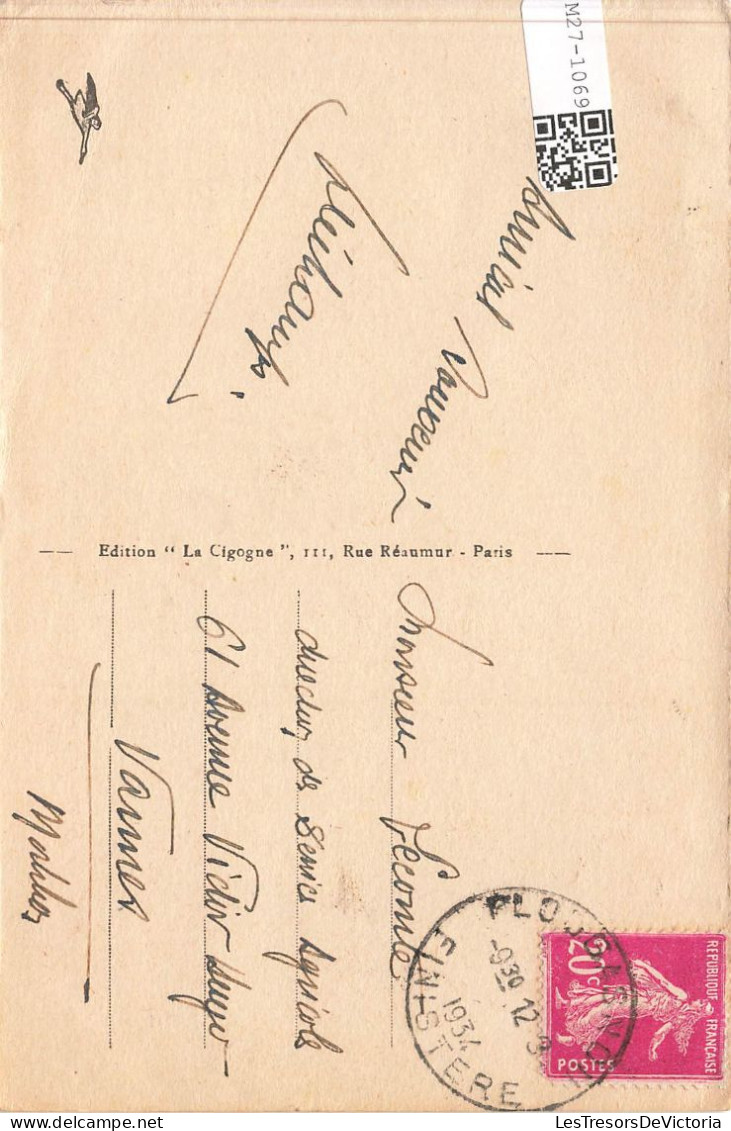 M27-1069
Amical Souvenir
Edition “ La Cigogne ”, 111, Rue Réaumur - Paris
Monsieur Lecomte
directeur des Services Agricole
61 Avenue Victor Hugo
Vannes
Morbihan
PLOUGASNOU
-930
12 - 9
1934
FINISTERE
REPUBLIQUE FRANÇAISE
20c
POSTES
LesTresorsDeVictoria
www.delcampe.net